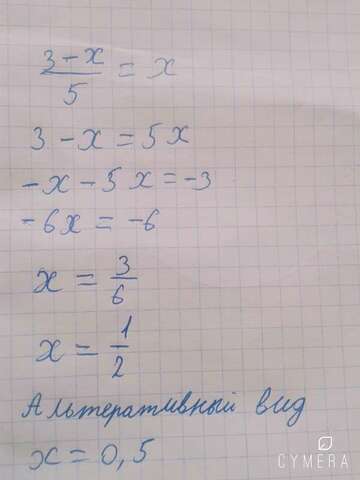 3 - x
5
= x
3 - x = 5x
-x - 5x = -3
-6x = -6
x = 3/6
x = 1/2
Альтеративный вид
x = 0,5
CYMERA